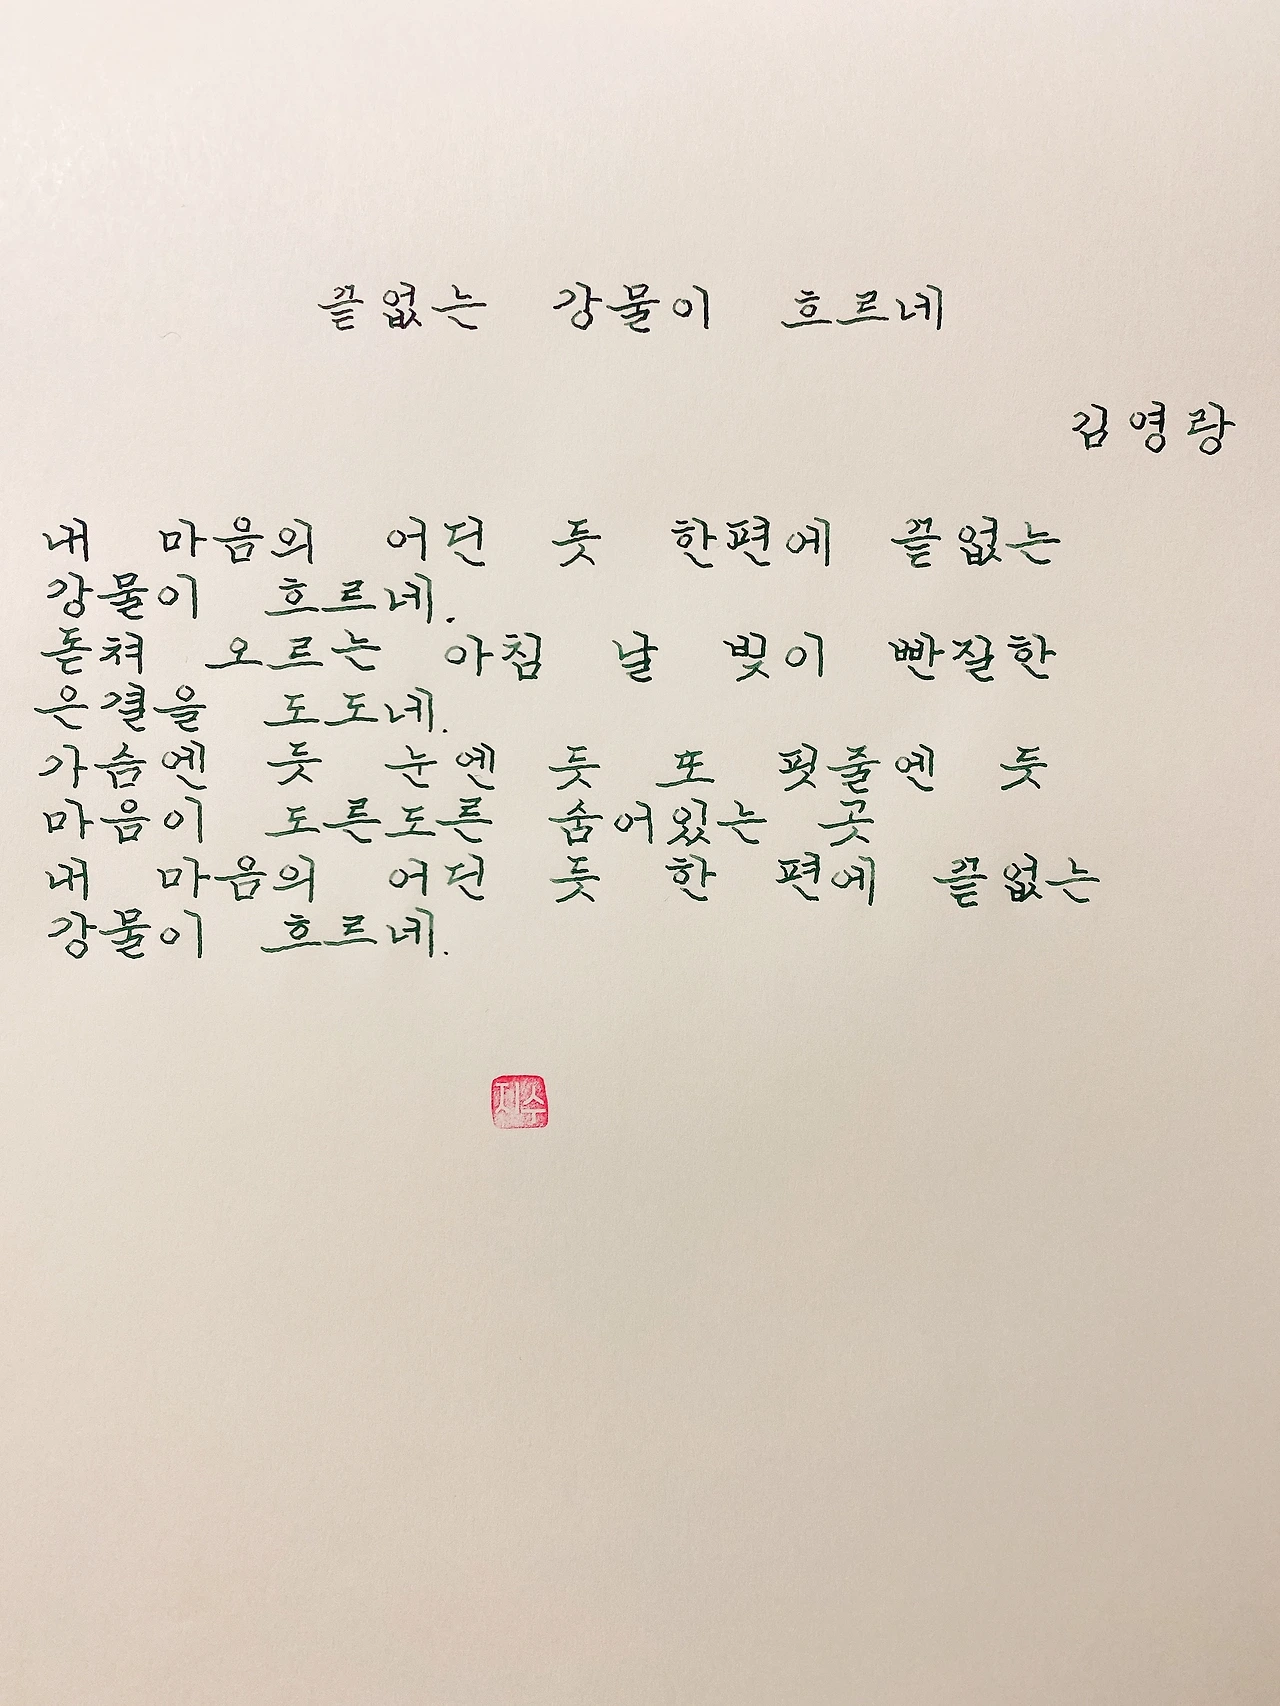 끝없는 강물이 흐르네
김영랑
내 마음의 어딘 듯 한편에 끝없는
강물이 흐르네.
돋쳐 오르는 아침 날 빛이 빤질한
은결을 도도네.
가슴엔 듯 눈엔 듯 또 핏줄엔 듯
마음이 도른도른 숨어있는 곳
내 마음의 어딘 듯 한 편에 끝없는
강물이 흐르네.
지수